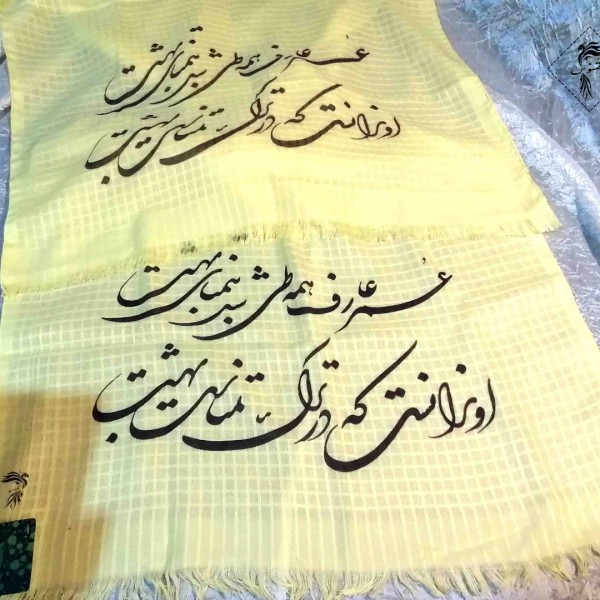 عمر عارف همه طی شد به تمنای بهشت
او ندانست که در ترک تمنای بهشت
عمر عارف همه طی شد به تمنای بهشت
او ندانست که در ترک تمنای بهشت